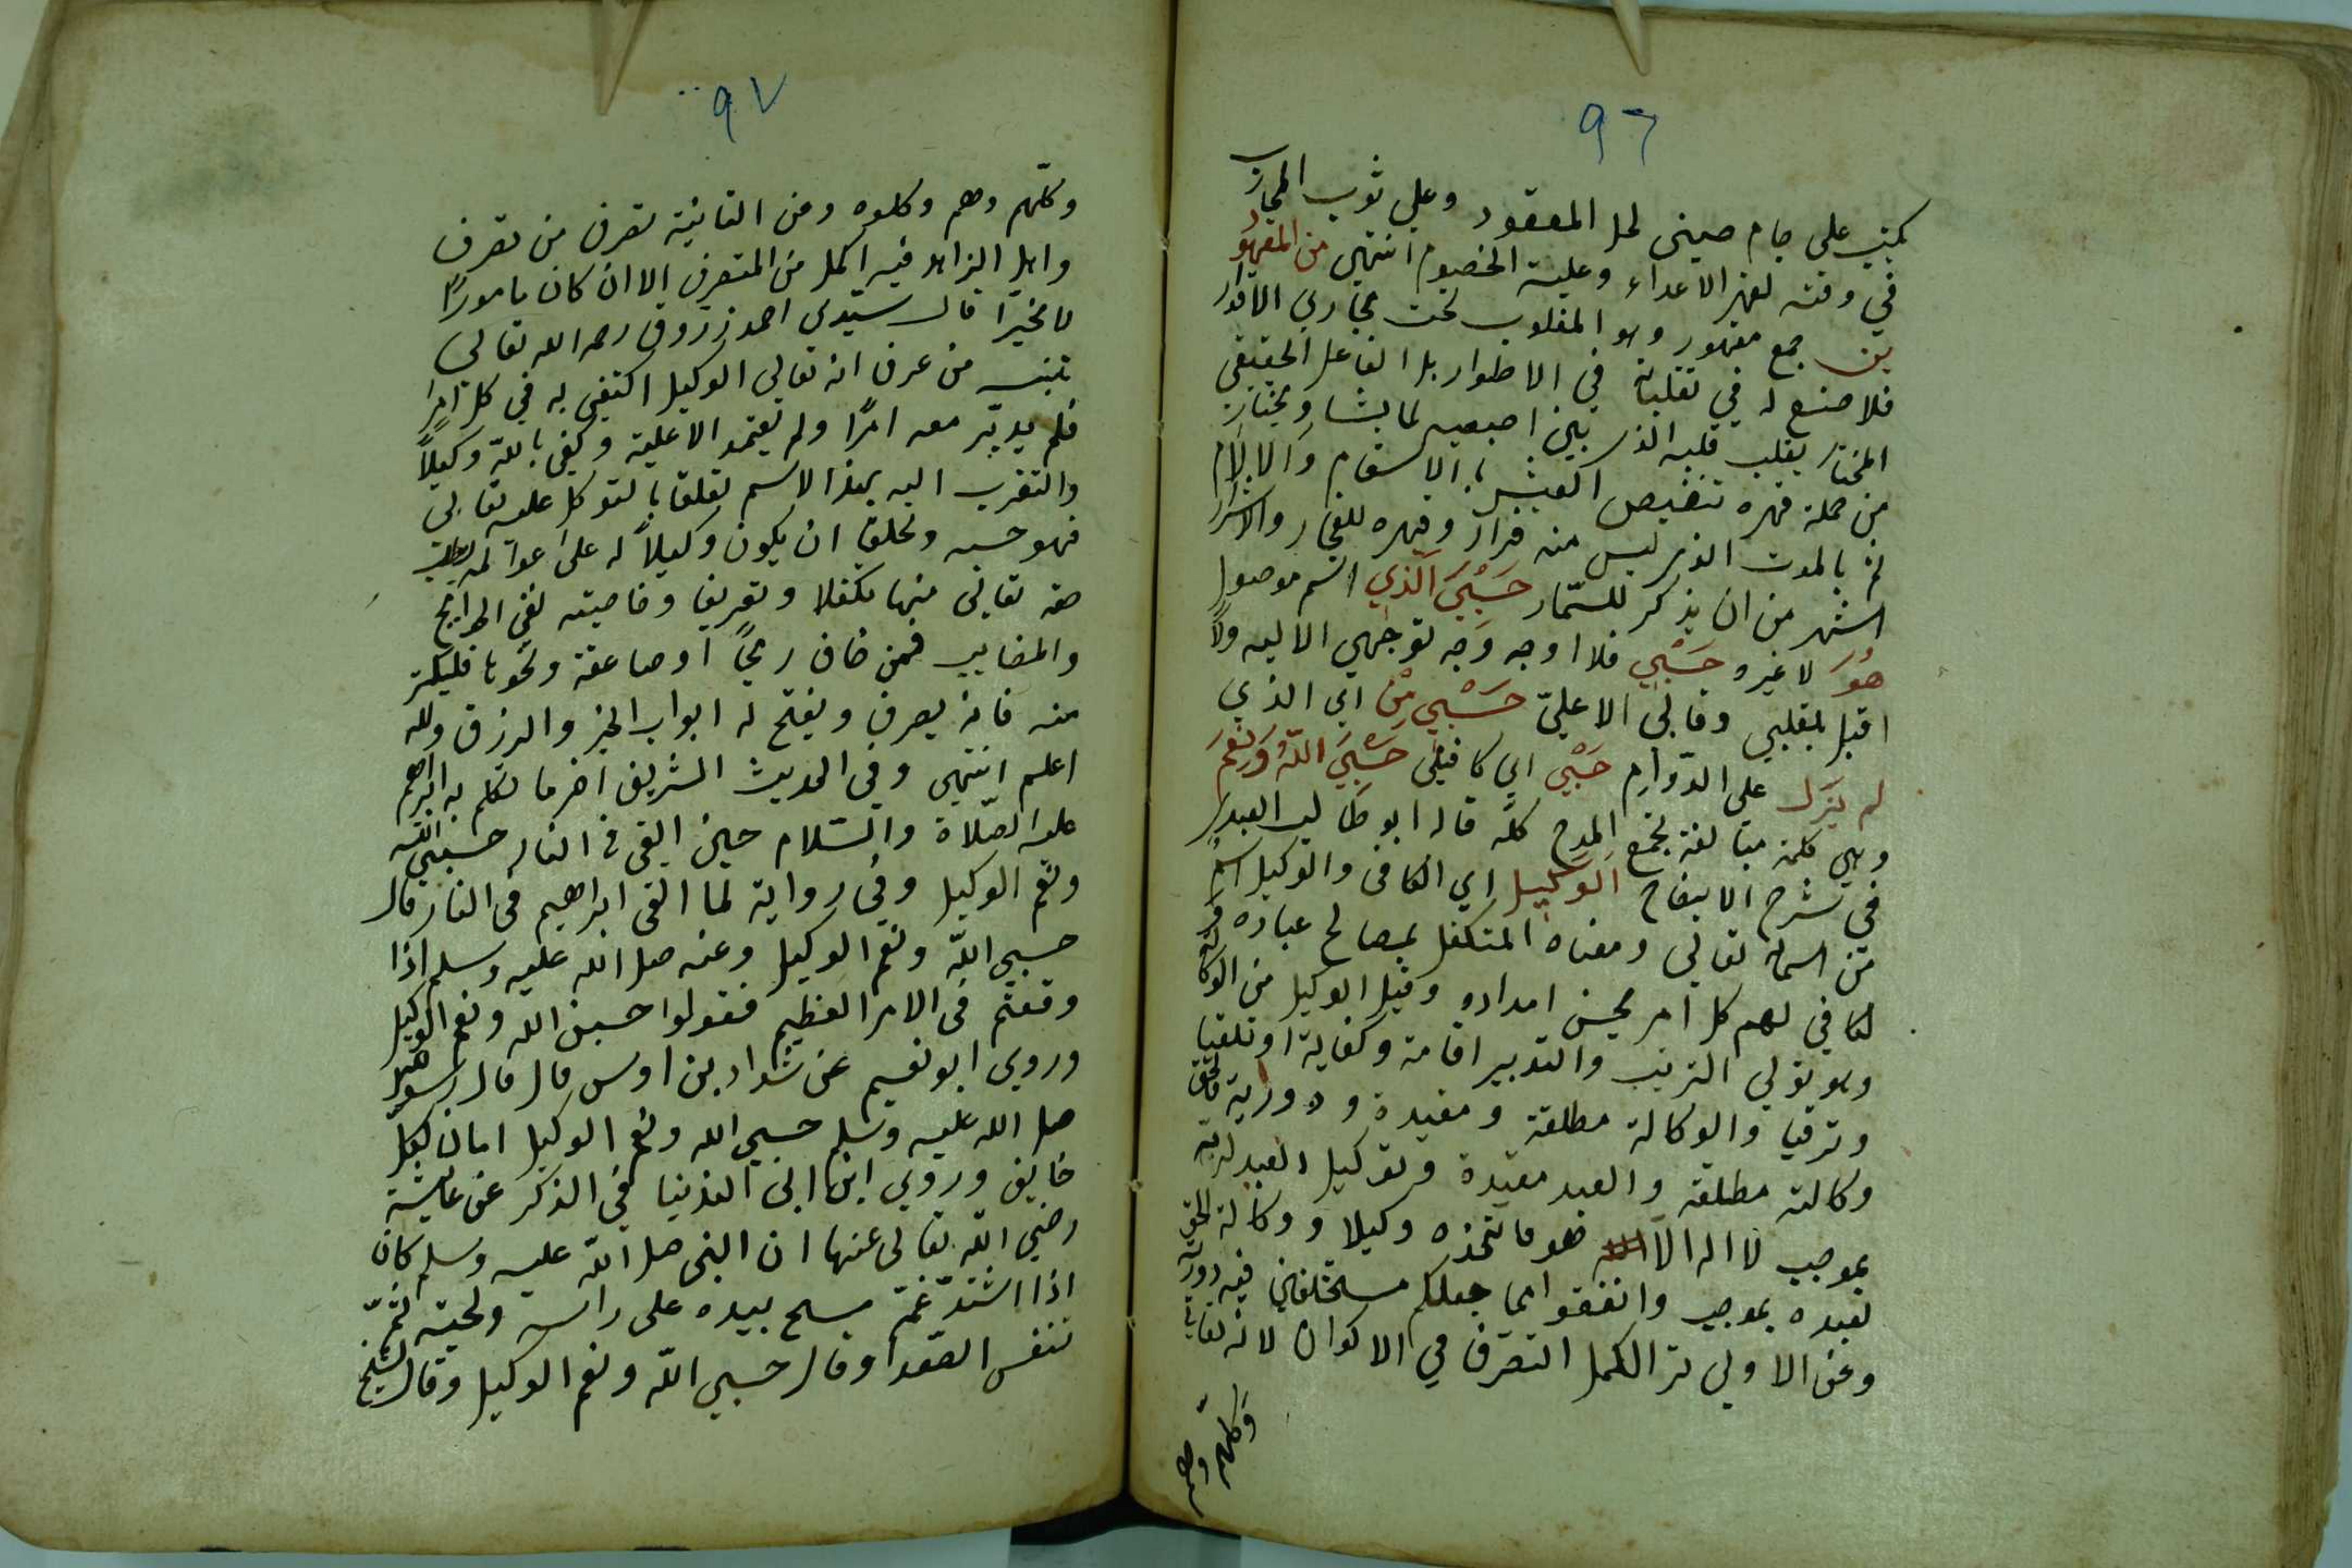 ٩٦
يكتب على جام صيني لحل المعقود وعلى ثوب المحارب
في وقته لقهر الاعداء وغلبة الخصوم انتهى من المقهو
رين جمع مقهور وهو المغلوب تحت مجاري الاقدار
فلا صنع له في تقلباته في الاطوار بل الفاعل الحقيقي
المختار يقلب قلبه الذي بين اصبعيه لما يشا ويختار
من جملة قهره تنغيص العيش بالاسقام والالام
ثم بالموت الذي ليس منه فرار وقهره للفجار والاشرار
اشهر من ان يذكر للسمار حَسْبِيَ الَّذِي اسم موصول
هُوَ لا غيره حَسْبِي فلا اوجه وجه توجهي الا اليه ولا
اقبل بقلبي وقالبي الا عليه حَسْبِي مَنْ اي الذي
لم يزل على الدوام حَسْبِي اي كافيني حَسْبِيَ اللّٰهُ وَنِعْمَ
وهي كلمة مبالغة تجمع المدح كله قاله ابو طالب العبدي
في شرح الايضاح الوكيل اي الكافي والوكيل اسم
من اسمائه تعالى ومعناه المتكفل بمصالح عباده
الكافي لهم كل امر بحسن امداده وقيل الوكيل من الوكالة
وهو تولي الترتيب والتدبير اقامة وكفاية او تلقيا
وترقيا والوكالة مطلقة ومقيدة ودورية فالحق
وكالته مطلقة والعبد مقيدة وتوكيل العبد لربه
بموجب لا اله الا هو فاتخذه وكيلا ووكالة الحق
لعبده بموجب وانفقوا مما جعلكم مستخلفين فيه دورية
وعن الاولى ترا الكمل التصرف في الاكوان لانه تعالى
وكلهم وهم
٩٧
وكلهم وهم وكلوه ومن الثانية تصرف من تصرف
واهل الزاهد فيه اكمل من المتصرف الا ان كان مامورًا
لا مخيرًا قال سيدي احمد زروق رحمه الله تعالى
تنبيه من عرف انه تعالى الوكيل اكتفى به في كل امر
فلم يدبّر معه امرًا ولم يعتمد الا عليه وكفى بالله وكيلًا
والتقرب اليه بهذا الاسم تعلقا بالتوكل عليه تعالى
فهو حسبه وتخلقا ان يكون وكيلًا له على عوالمه يطلب
حقه تعالى منها تكفلا وتعريفا وخاصيته نفي الحوايج
والمصايب فمن خاف ريحًا او صاعقة ونحوها فليكثر
منه فانه يصرف ويفتح له ابواب الخير والرزق والله
اعلم انتهى وفي الحديث الشريف اخر ما تكلم به ابراهيم
عليه الصّلاة والسّلام حين القي في النار حسبي الله
ونعم الوكيل وفي رواية لما القى ابراهيم في النار قال
حسبي اللّه ونعم الوكيل وعنه صلى الله عليه وسلم اذا
وقعتم في الامر العظيم فقولوا حسبنا الله ونعم الوكيل
وروى ابو نعيم عن شداد بن اوس قال قال رسول الله
صلى الله عليه وسلم حسبي الله ونعم الوكيل امان لكل
خايف وروي ابن ابي الدنيا في الذكر عن عايشة
رضي اللّه تعالى عنها ان النبي صلى اللّه عليه وسلم كان
اذا اشتدّ غمّه مسح بيده على راسه ولحيته ثمّ
تنفس الصعدا وقال حسبي اللّه ونعم الوكيل وقال الشيخ